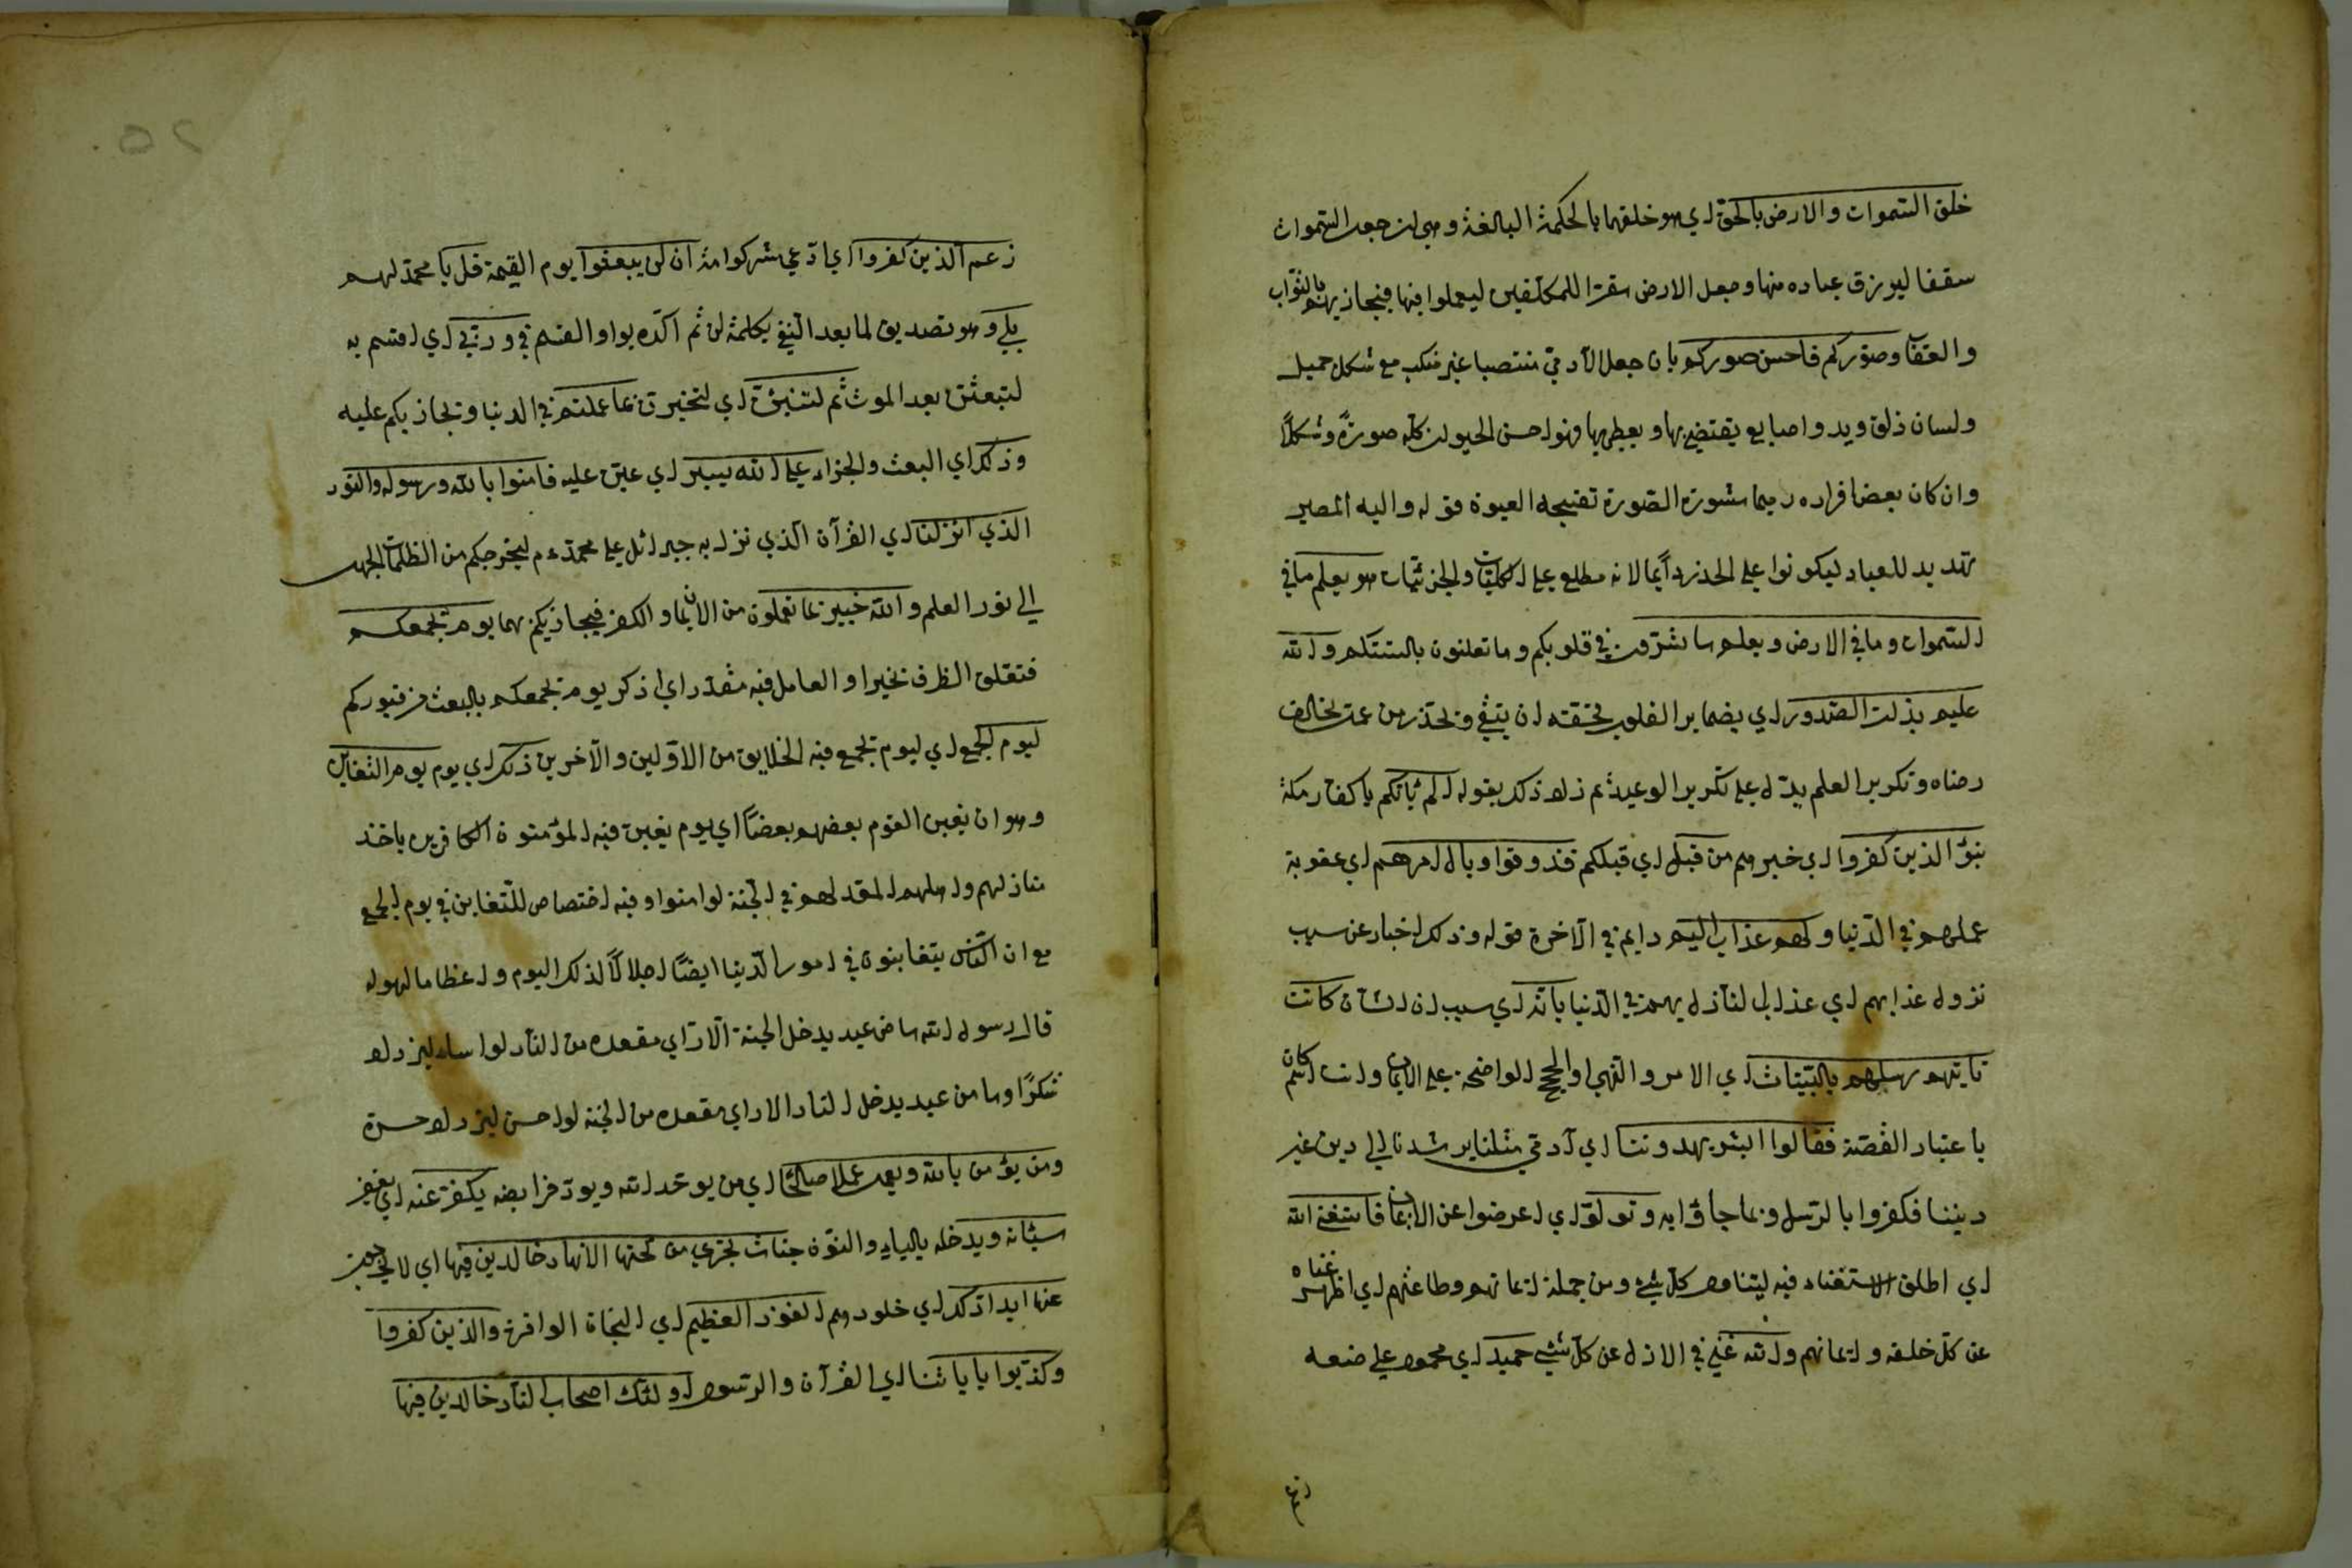 خلق السموات والارض بالحق اي هو خلقهما بالحكمة البالغة وهي ان جعل السموات
سقفا ليرزق عباده منها وجعل الارض مقرا للمكلفين ليعملوا فيها فيجازيهم بالثواب
والعقاب وصوركم فاحسن صوركم بان جعل الآدمي منتصبا غير منكب مع شكل جميل
ولسان ذلق ويد واصابع يقتضي بها ويعطي بها فهو احسن الحيوان كله صورة وشكلا
وان كان بعض افراده دميما مشوه الصورة تقبيحه العيون قوله واليه المصير
تهديد للعباد ليكونوا على الحذر دائما لانه مطلع على الكليات والجزئيات هو يعلم ما في
السموات وما في الارض ويعلم ما تسرون في قلوبكم وما تعلنون بالسنتكم والله
عليم بذات الصدور اي بضماير القلوب فحقه ان يتقى ويحذر من عمل يخالف
رضاه وتكرير العلم يدل على تكرير الوعيد ثم ذلك بقوله الم ياتكم يا كفار مكة
نبؤ الذين كفروا اي خبرهم من قبل اي قبلكم فذوقوا وبال امرهم اي عقوبة
عملهم في الدنيا ولهم عذاب اليم دايم في الآخرة قوله ذلك اخبار عن سبب
نزول عذابهم اي عذاب النازل بهم في الدنيا بانه اي بسبب ان الشان كانت
تاتيهم رسلهم بالبينات اي الامر والنهي او الحجج الواضحة على الايمان وانث كان
باعتبار القصة فقالوا ابشر يهدوننا اي آدمي مثلنا يرشدنا الي دين غير
ديننا فكفروا بالرسل وبما جاؤا به وتولوا اي اعرضوا عن الايمان فاستغنى الله
اي اطلق الاستغناء فيه ليتناول كل شيء ومن جملته ايمانهم وطاعتهم اي اظهر غناه
عن كل خلقه وايمانهم والله غني في الازل عن كل شيء حميد اي محمود على صنعه
زعم
زعم الذين كفروا اي ادعى مشركوا مكة ان لن يبعثوا يوم القيمة قل يا محمد لهم
بلى وهو تصديق لما بعد النفي بكلمة لن ثم اكده بواو القسم في وربي اي اقسم به
لتبعثن بعد الموت ثم لتنبؤن اي لتخبرن بما عملتم في الدنيا وتجازيكم عليه
وذلك اي البعث والجزاء على الله يسير اي هين عليه فامنوا بالله ورسوله والنور
الذي انزلنا اي القرآن الذي نزل به جبرائل على محمد ع م ليخرجكم من الظلمات الجهل
الي نور العلم والله خبير بما تعملون من الايمان والكفر فيجازيكم بهما يوم يجمعكم
فتعلق الظرف بخبير او العامل فيه مقدر اي اذكر يوم يجمعكم بالبعث من قبوركم
ليوم الجمع اي ليوم تجمع فيه الخلايق من الاولين والآخرين ذلك اي يوم يوم التغابن
وهو ان يغبن القوم بعضهم بعضا اي يوم يغبن فيه المؤمنون الكافرين باخذ
منازلهم واهلهم المعد لهم في الجنة لو امنوا وفيه اختصاص للتغابن في يوم الجمع
مع ان الناس يتغابنون في امور الدنيا ايضا اجلالا لذلك اليوم واعظاما لهوله
قال رسول الله ما من عبد يدخل الجنة الا راي مقعده من النار لو اساء ليزداد
شكرا وما من عبد يدخل النار الا راي مقعده من الجنة لو احسن ليزداد حسرة
ومن يؤمن بالله ويعمل عملا صالحا اي من يوحد الله ويود فرايضه يكفر عنه اي يغفر
سيئاته ويدخله بالياء والنون جنات تجري من تحتها الانهار خالدين فيها اي لا يخرجون
عنها ابدا ذلك اي خلودهم الفوز العظيم اي النجاة الوافرة والذين كفروا
وكذبوا باياتنا اي القرآن والرسول اولئك اصحاب النار خالدين فيها